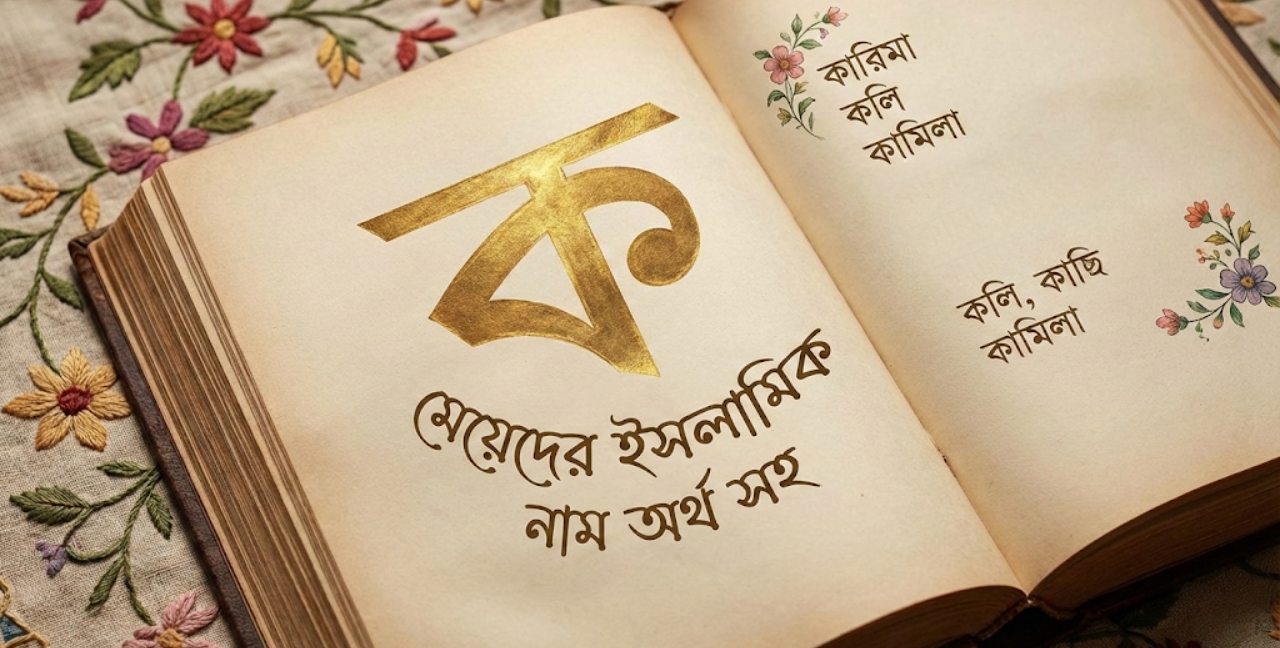 ক
মেয়েদের ইসলামিক
নাম অর্থ সহ
কারিমা
কলি
কামিলা
কলি, কাছি
কামিলা